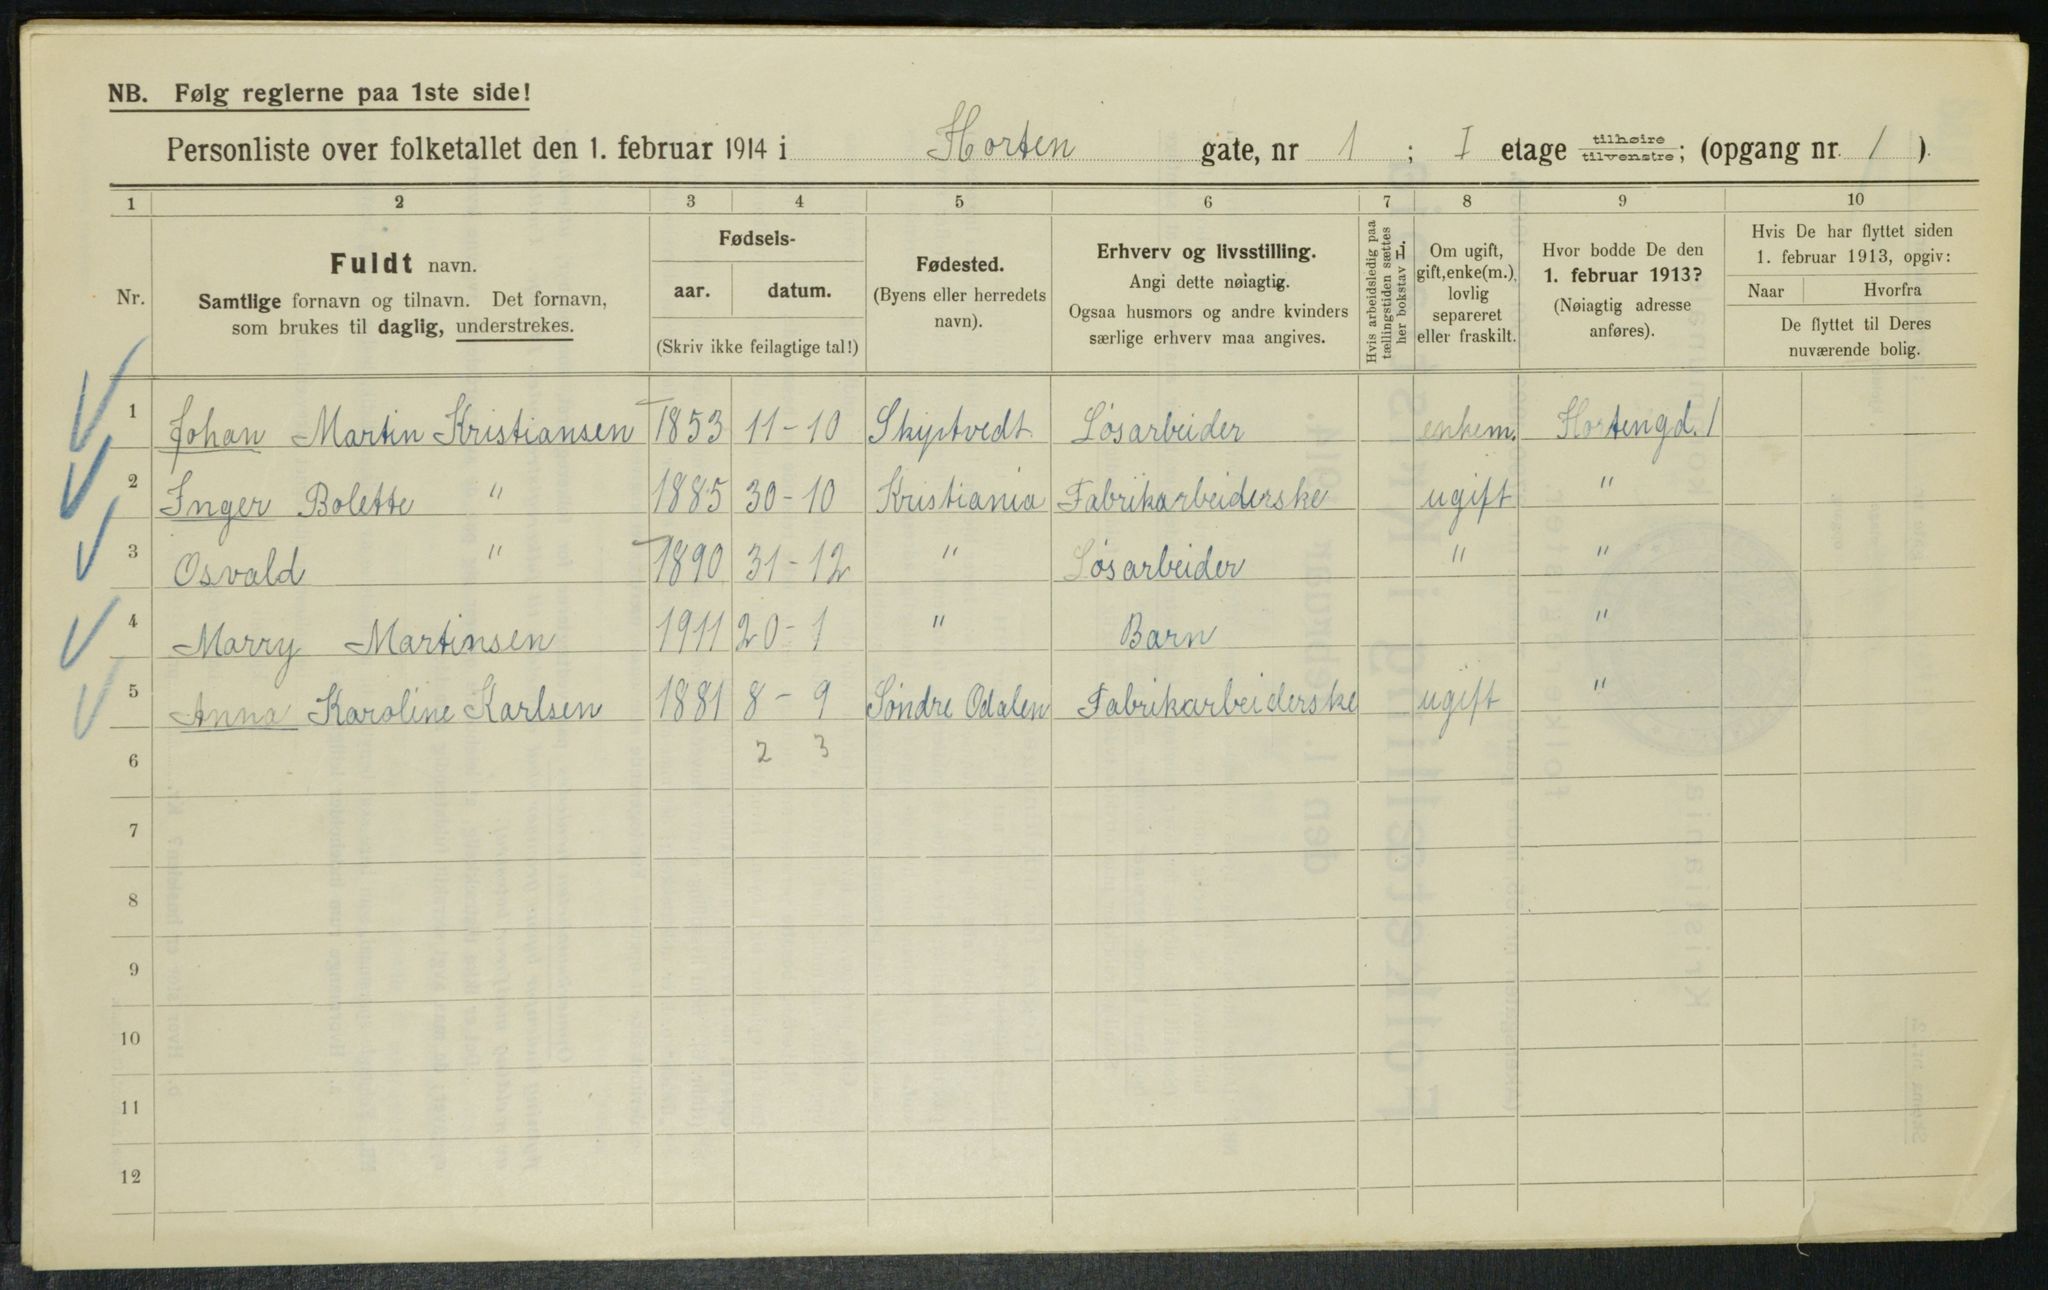 NB. Følg reglerne paa 1ste side!
Personliste over folketallet den 1. februar 1914 i Horten gate, nr 1 ; I etage tilhøire tilvenstre; (opgang nr. 1 ).
1 2 3 4 5 6 7 8 9 10
Nr.
Fuldt navn.
Samtlige fornavn og tilnavn. Det fornavn,
som brukes til daglig, understrekes.
Fødsels-
aar. datum.
(Skriv ikke feilagtige tal!)
Fødested.
(Byens eller herredets
navn).
Erhverv og livsstilling.
Angi dette nøiagtig.
Ogsaa husmors og andre kvinders
særlige erhverv maa angives.
Hvis arbeidsledig paa
tællingstiden sættes
her bokstav L.
Om ugift,
gift, enke(m.),
lovlig
separeret
eller fraskilt.
Hvor bodde De den
1. februar 1913?
(Nøiagtig adresse
anføres).
Hvis De har flyttet siden
1. februar 1913, opgiv:
Naar Hvorfra
De flyttet til Deres
nuværende bolig.
1 Johan Martin Kristiansen 1853 11-10 Skiptvedt Løsarbeider enkem. Hortengd. 1
2 Inger Bolette " 1885 30-10 Kristiania Fabrikarbeiderske ugift "
3 Osvald " 1890 31-12 " Løsarbeider " "
4 Marry Martinsen 1911 20-1 " Barn "
5 Anna Karoline Karlsen 1881 8-9 Søndre Odalen Fabrikarbeiderske ugift "
6 2 3
7
8
9
10
11
12